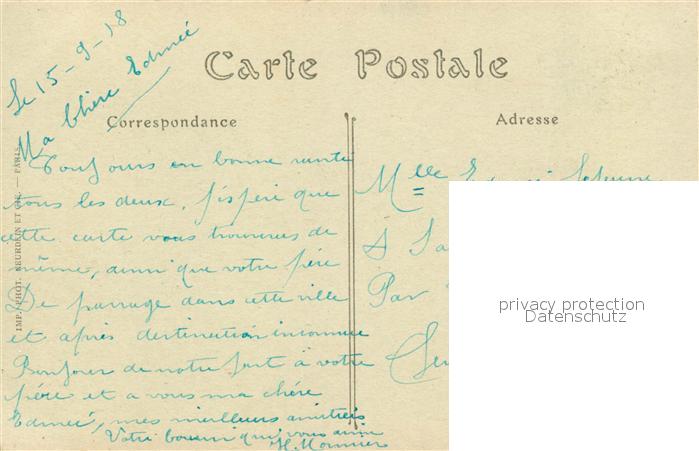 Le 15-9-18
Carte Postale
Ma Chère Edmée
Correspondance
Adresse
Toujours en bonne santé
tous les deux, j'espère que
cette carte vous trouveras de
même, ainsi que votre père
De passage dans cette ville
et après destination inconnue
Bonjour de notre part à votre
père et a vous ma chère
Edmée, mes meilleurs amitiés
Votre cousin qui vous aime
H. Monnier
Mlle
à
Par
IMP. PHOT. NEURDEIN ET CIE. — PARIS
privacy protection
Datenschutz